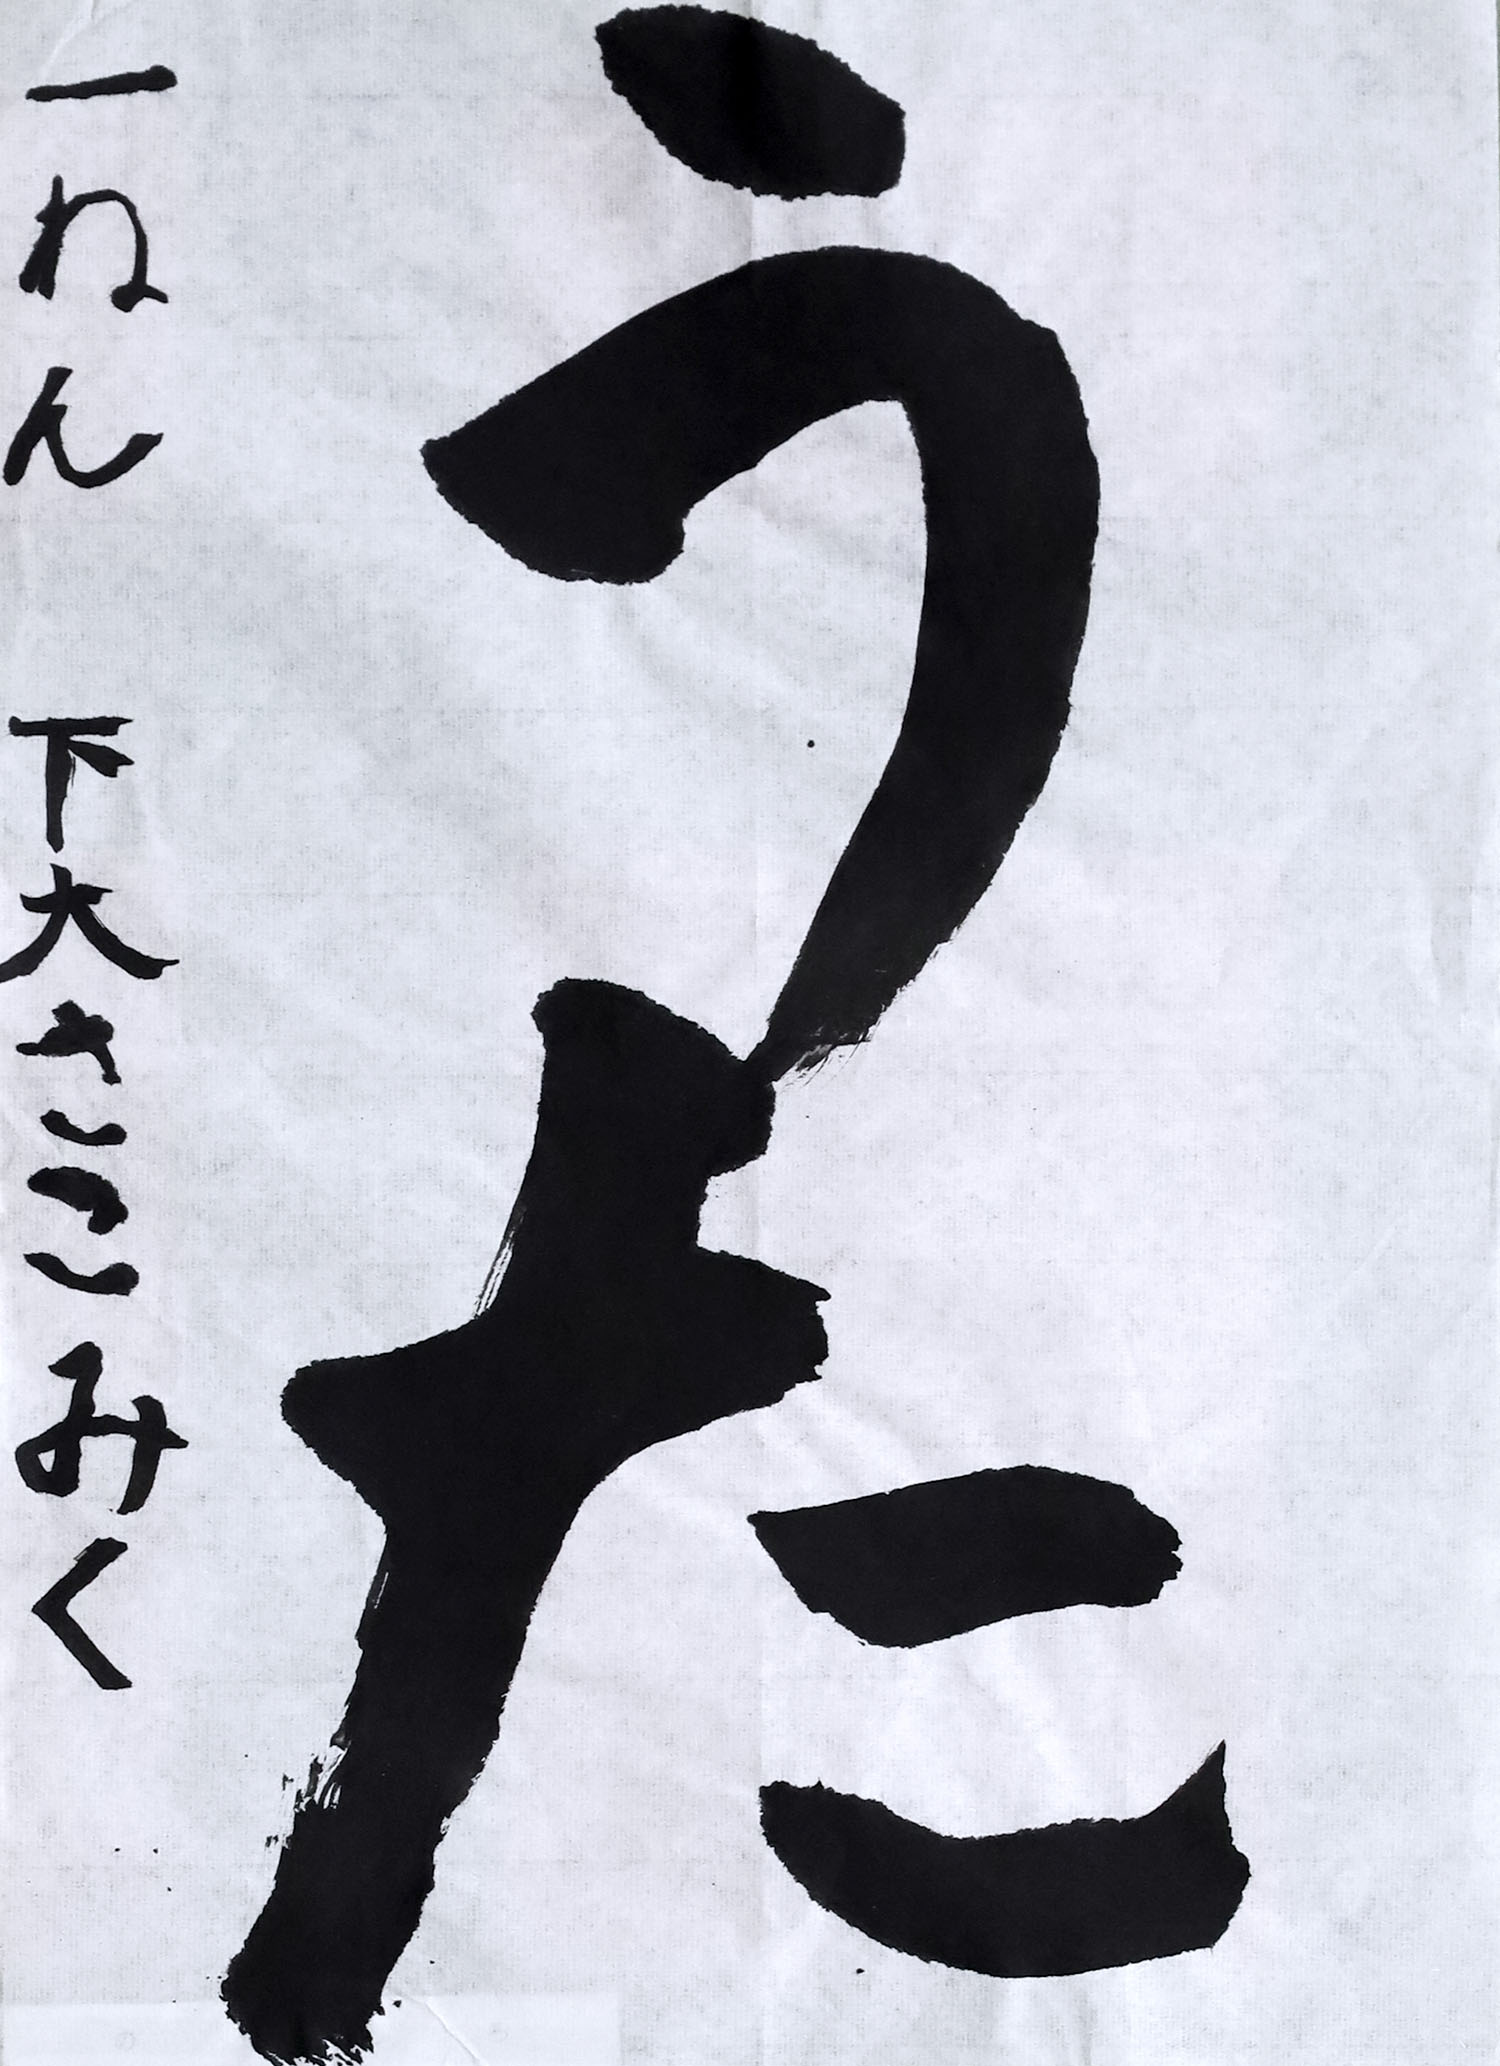 うた
一ねん 下大さこみく